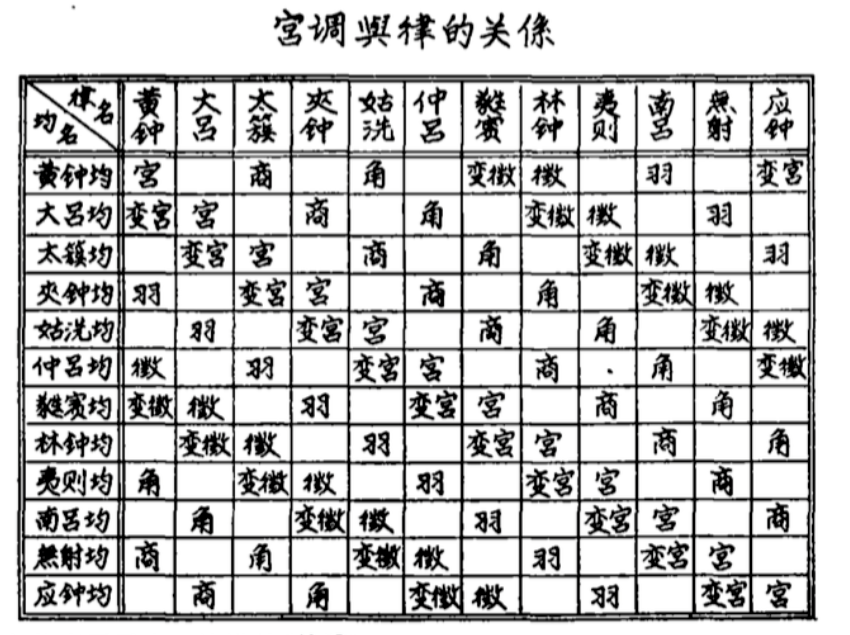 宮调與律的关係
律名 均名 黄钟 大吕 太簇 夾钟 姑洗 仲吕 蕤賓 林钟 夷则 南吕 無射 应钟
黄钟均 宮 商 角 变徵 徵 羽 变宮
大吕均 变宮 宮 商 角 变徵 徵 羽
太簇均 变宮 宮 商 角 变徵 徵 羽
夾钟均 羽 变宮 宮 商 角 变徵 徵
姑洗均 羽 变宮 宮 商 角 变徵 徵
仲吕均 徵 羽 变宮 宮 商 角 变徵
蕤賓均 变徵 徵 羽 变宮 宮 商 角
林钟均 变徵 徵 羽 变宮 宮 商 角
夷则均 角 变徵 徵 羽 变宮 宮 商
南吕均 角 变徵 徵 羽 变宮 宮 商
無射均 商 角 变徵 徵 羽 变宮 宮
应钟均 商 角 变徵 徵 羽 变宮 宮